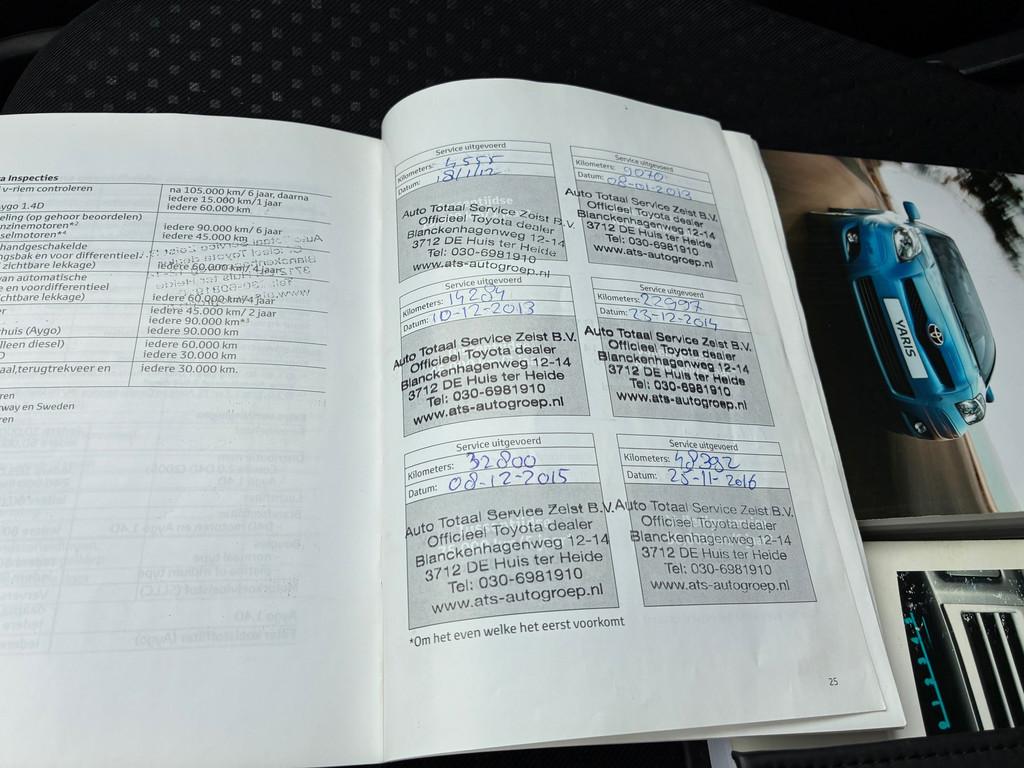 a Inspecties
v-riem controleren
na 105.000 km/ 6 jaar, daarna
iedere 15.000 km/1 jaar
Aygo 1.4D
iedere 60.000 km
eling (op gehoor beoordelen)
nzinemotoren*²
iedere 90.000 km/ 6 jaar
selmotoren*⁴
iedere 45.000 km
handgeschakelde
ngsbak en voor differentieel
zichtbare lekkage)
iedere 60.000 km/4 jaar
van automatische
e en voordifferentieel
ichtbare lekkage)
iedere 60.000 km/4 jaar
er
iedere 45.000 km/ 2 jaar
iedere 90.000 km*³
rhuis (Aygo)
iedere 90.000 km
lleen diesel)
iedere 60.000 km
D
iedere 30.000 km
aal,terugtrekveer en
iedere 30.000 km.
ren
rway en Sweden
ren
Service uitgevoerd
Kilometers: 4555
Datum: 18/1/12
Auto Totaal Service Zeist B.V.
Officieel Toyota dealer
Blanckenhagenweg 12-14
3712 DE Huis ter Heide
Tel: 030-6981910
www.ats-autogroep.nl
Service uitgevoerd
Kilometers: 9070
Datum: 08-01-2013
Auto Totaal Service Zeist B.V.
Officieel Toyota dealer
Blanckenhagenweg 12-14
3712 DE Huis ter Heide
Tel: 030-6981910
www.ats-autogroep.nl
Service uitgevoerd
Kilometers: 14284
Datum: 10-12-2013
Auto Totaal Service Zeist B.V.
Officieel Toyota dealer
Blanckenhagenweg 12-14
3712 DE Huis ter Heide
Tel: 030-6981910
www.ats-autogroep.nl
Service uitgevoerd
Kilometers: 22997
Datum: 23-12-2014
Auto Totaal Service Zeist B.V.
Officieel Toyota dealer
Blanckenhagenweg 12-14
3712 DE Huis ter Heide
Tel: 030-6981910
www.ats-autogroep.nl
Service uitgevoerd
Kilometers: 32800
Datum: 08-12-2015
Auto Totaal Service Zeist B.V.
Officieel Toyota dealer
Blanckenhagenweg 12-14
3712 DE Huis ter Heide
Tel: 030-6981910
www.ats-autogroep.nl
Service uitgevoerd
Kilometers: 48332
Datum: 25-11-2016
Auto Totaal Service Zeist B.V.
Officieel Toyota dealer
Blanckenhagenweg 12-14
3712 DE Huis ter Heide
Tel: 030-6981910
www.ats-autogroep.nl
*Om het even welke het eerst voorkomt
25
YARIS